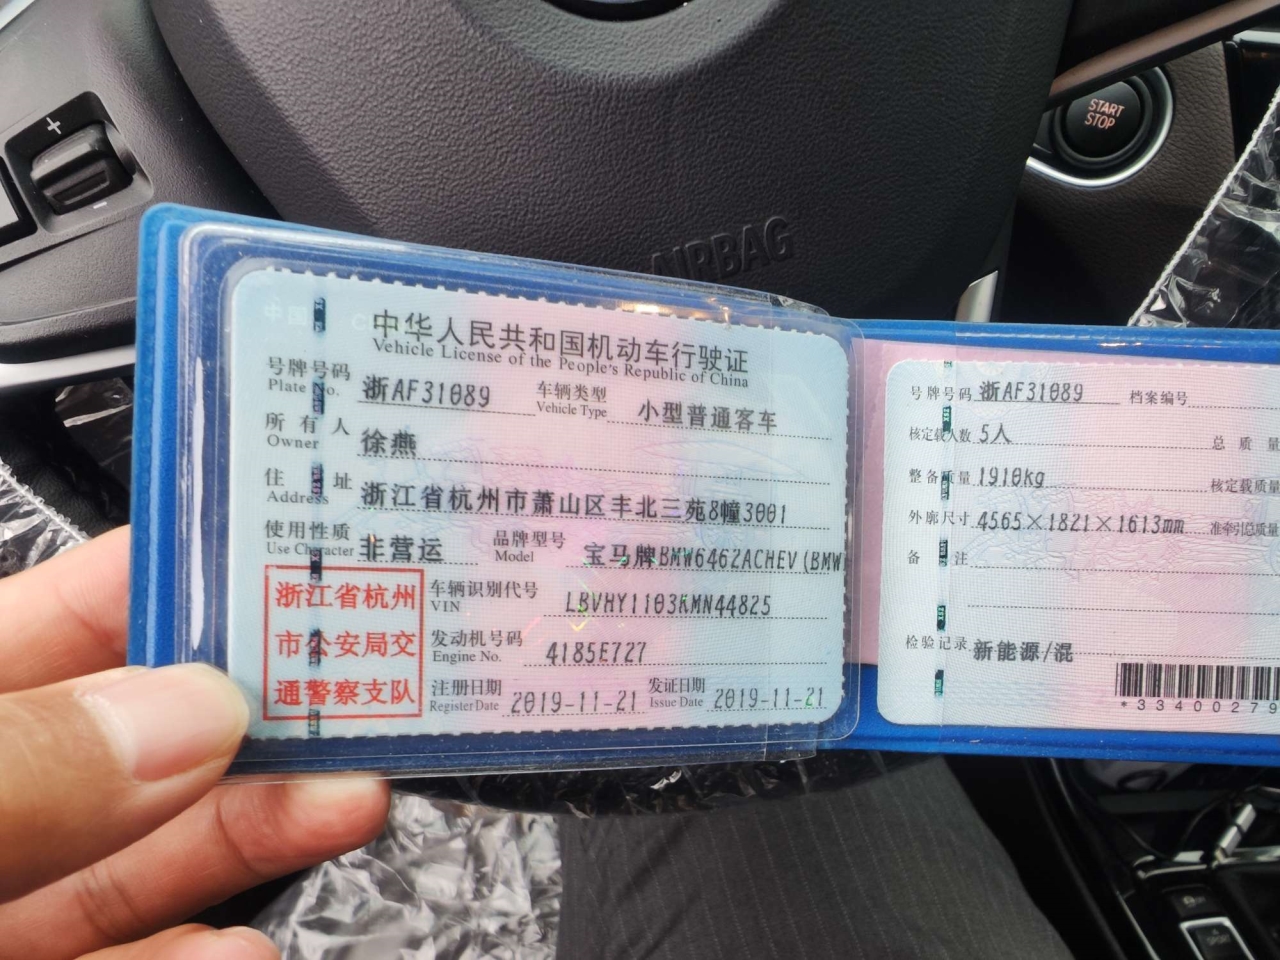 START
STOP
AIRBAG
中华人民共和国机动车行驶证
Vehicle License of the People's Republic of China
号牌号码 浙AF31089 车辆类型 小型普通客车
Plate No. Vehicle Type
所有人 徐燕
Owner
住址 浙江省杭州市萧山区丰北三苑8幢3001
Address
使用性质 非营运 品牌型号 宝马牌BMW6462ACHEV(BMW
Use Character Model
浙江省杭州
市公安局交
通警察支队
车辆识别代号 LBVHY1103KMN44825
VIN
发动机号码 4185E727
Engine No.
注册日期 2019-11-21 发证日期 2019-11-21
Register Date Issue Date
号牌号码 浙AF31089 档案编号
核定载人数 5人 总质量
整备质量 1910kg 核定载质量
外廓尺寸 4565×1821×1613mm 准牵引总质量
备注
检验记录 新能源/混
*33400279